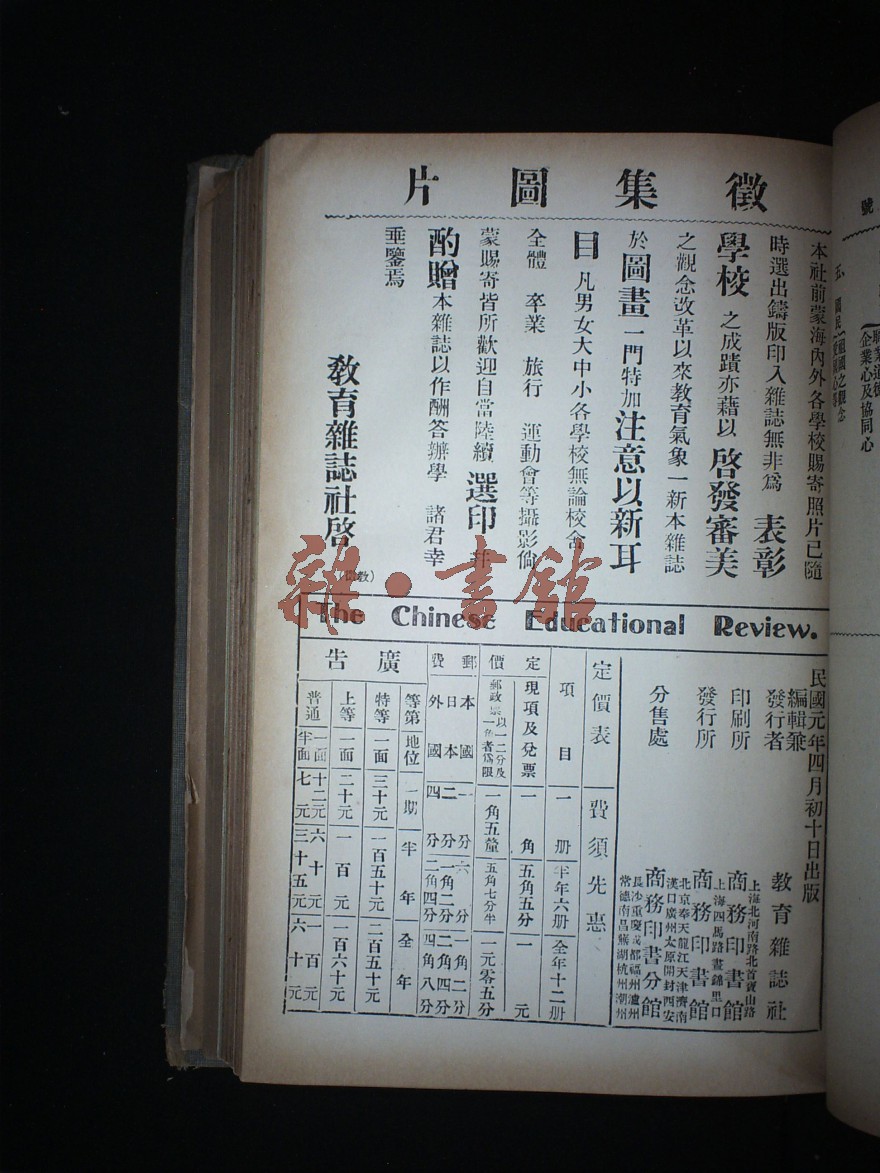 徵集圖片
本社前蒙海內外各學校賜寄照片已隨
時選出鑄版印入雜誌無非爲 表彰
學校 之成蹟亦藉以 啓發審美
之觀念改革以來敎育氣象一新本雜誌
於 圖畫 一門特加 注意以新耳
目 凡男女大中小各學校無論校舍
全體 卒業 旅行 運動會等攝影倘
蒙賜寄皆所歡迎自當陸續 選印 并
酌贈 本雜誌以作酬答辦學 諸君幸
垂鑒焉
敎育雜誌社啓
The Chinese Educational Review.
民國元年四月初十日出版
編輯兼發行者 敎育雜誌社
印刷所 上海北河南路北首寶山路 商務印書館
發行所 上海四馬路晝錦里口 商務印書館
分售處 北京奉天龍江天津濟南
漢口廣州太原開封西安
商務印書分館
長沙重慶成都福州瀘州
常德南昌蕪湖杭州潮州
定價表 費須先惠
項目 一册 半年六册 全年十二册
定價 現項及兌票 一角 五角五分 一元
郵政票以一二分及一角者爲限 一角五釐 五角七分半 一元零五分
郵費 本國 一分 六分 一角二分
日本 二分 一角二分 二角四分
外國 四分 二角四分 四角八分
廣告
等第 地位 一期 半年 全年
特等 一面 三十元 一百五十元 二百五十元
上等 一面 二十元 一百元 一百六十元
普通 一面 十二元 六十元 一百元
半面 七元 三十五元 六十元
雜·書館
號
企業心及協同心